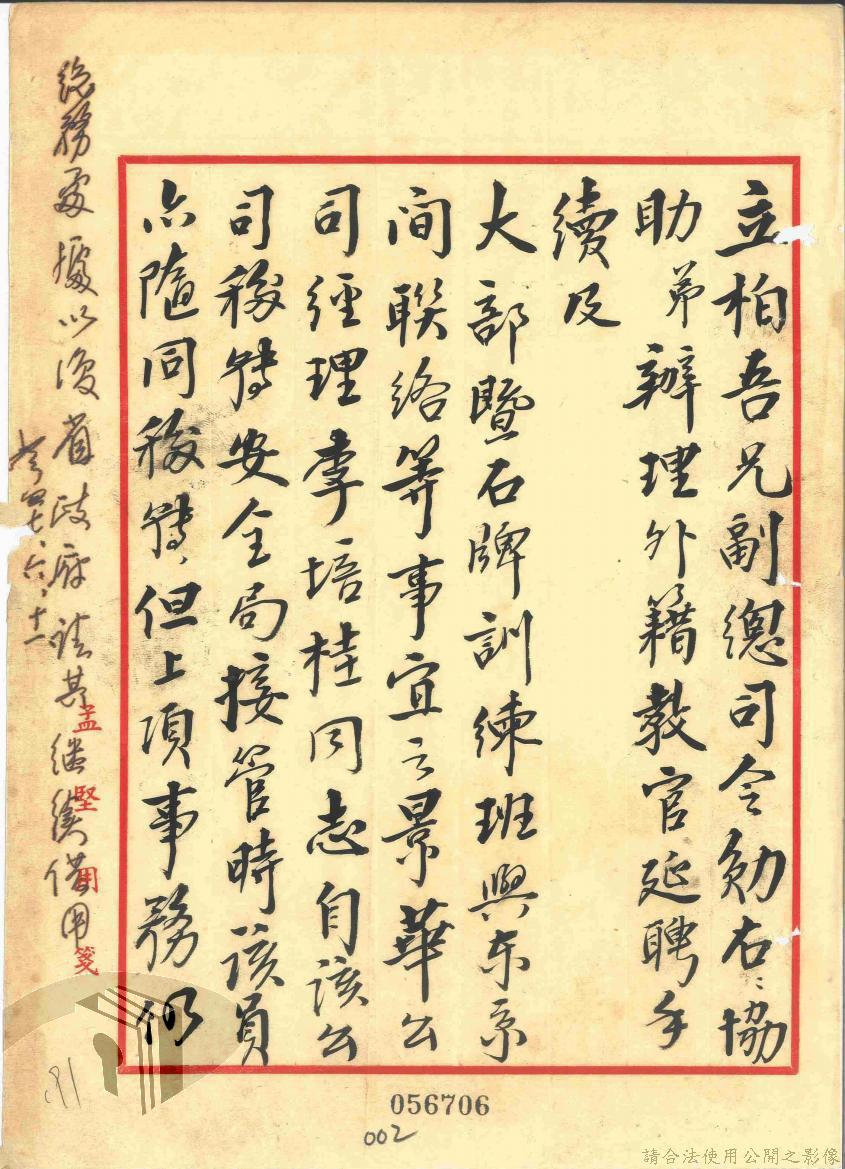 立柏吾兄副總司令勛右:協
助弟辦理外籍教官延聘手
續及
大部暨石牌訓練班與東京
間聯絡等事宜之景華公
司經理李培桂同志自該公
司移轉安全局接管時該員
亦隨同移轉,但上項事務仍
總務處擬以後省政府請其繼續借用
四七、六、十一
孟堅用箋
181
056706
002
請合法使用公開之影像